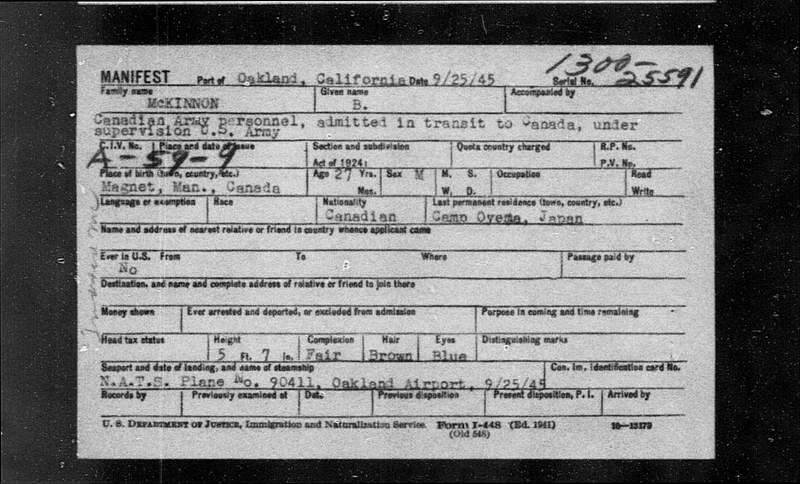 1300-
25591
MANIFEST Port of Oakland, California Date 9/25/45 Serial No.
Family name Given name Accompanied by
McKINNON B.
Canadian Army personnel, admitted in transit to Canada, under
supervision U.S. Army
C.I.V. No. Place and date of issue Section and subdivision Quota country charged R.P. No.
A-59-9 Act of 1924: P.V. No.
Place of birth (town, country, etc.) Age 27 Yrs. Sex M M. S. Occupation Read
Magnet, Man., Canada Mos. W. D. Write
Language or exemption Race Nationality Last permanent residence (town, country, etc.)
Canadian Camp Oyema, Japan
Name and address of nearest relative or friend in country whence applicant came
Ever in U.S. From To Where Passage paid by
No
Destination, and name and complete address of relative or friend to join there
Money shown Ever arrested and deported, or excluded from admission Purpose in coming and time remaining
Head tax status Height Complexion Hair Eyes Distinguishing marks
5 Ft. 7 In. Fair Brown Blue
Seaport and date of landing, and name of steamship Con. Im. Identification card No.
N.A.T.S. Plane No. 90411, Oakland Airport, 9/25/45
Records by Previously examined at Date Previous disposition Present disposition, P. I. Arrived by
U. S. DEPARTMENT OF JUSTICE, Immigration and Naturalization Service. Form I-448 (Ed. 1941) 16—13179
(Old 548)